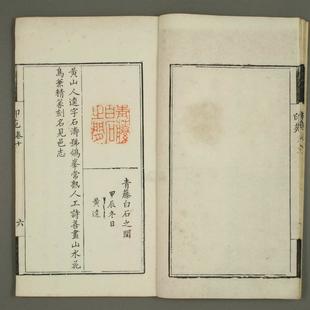 青藤白石之閒
甲辰冬日
黃遠
青藤
白石
之閒
黃山人遠字石濤號鴿峯常熟人工詩善畫山水花
鳥兼精篆刻名見邑志
卷十
六